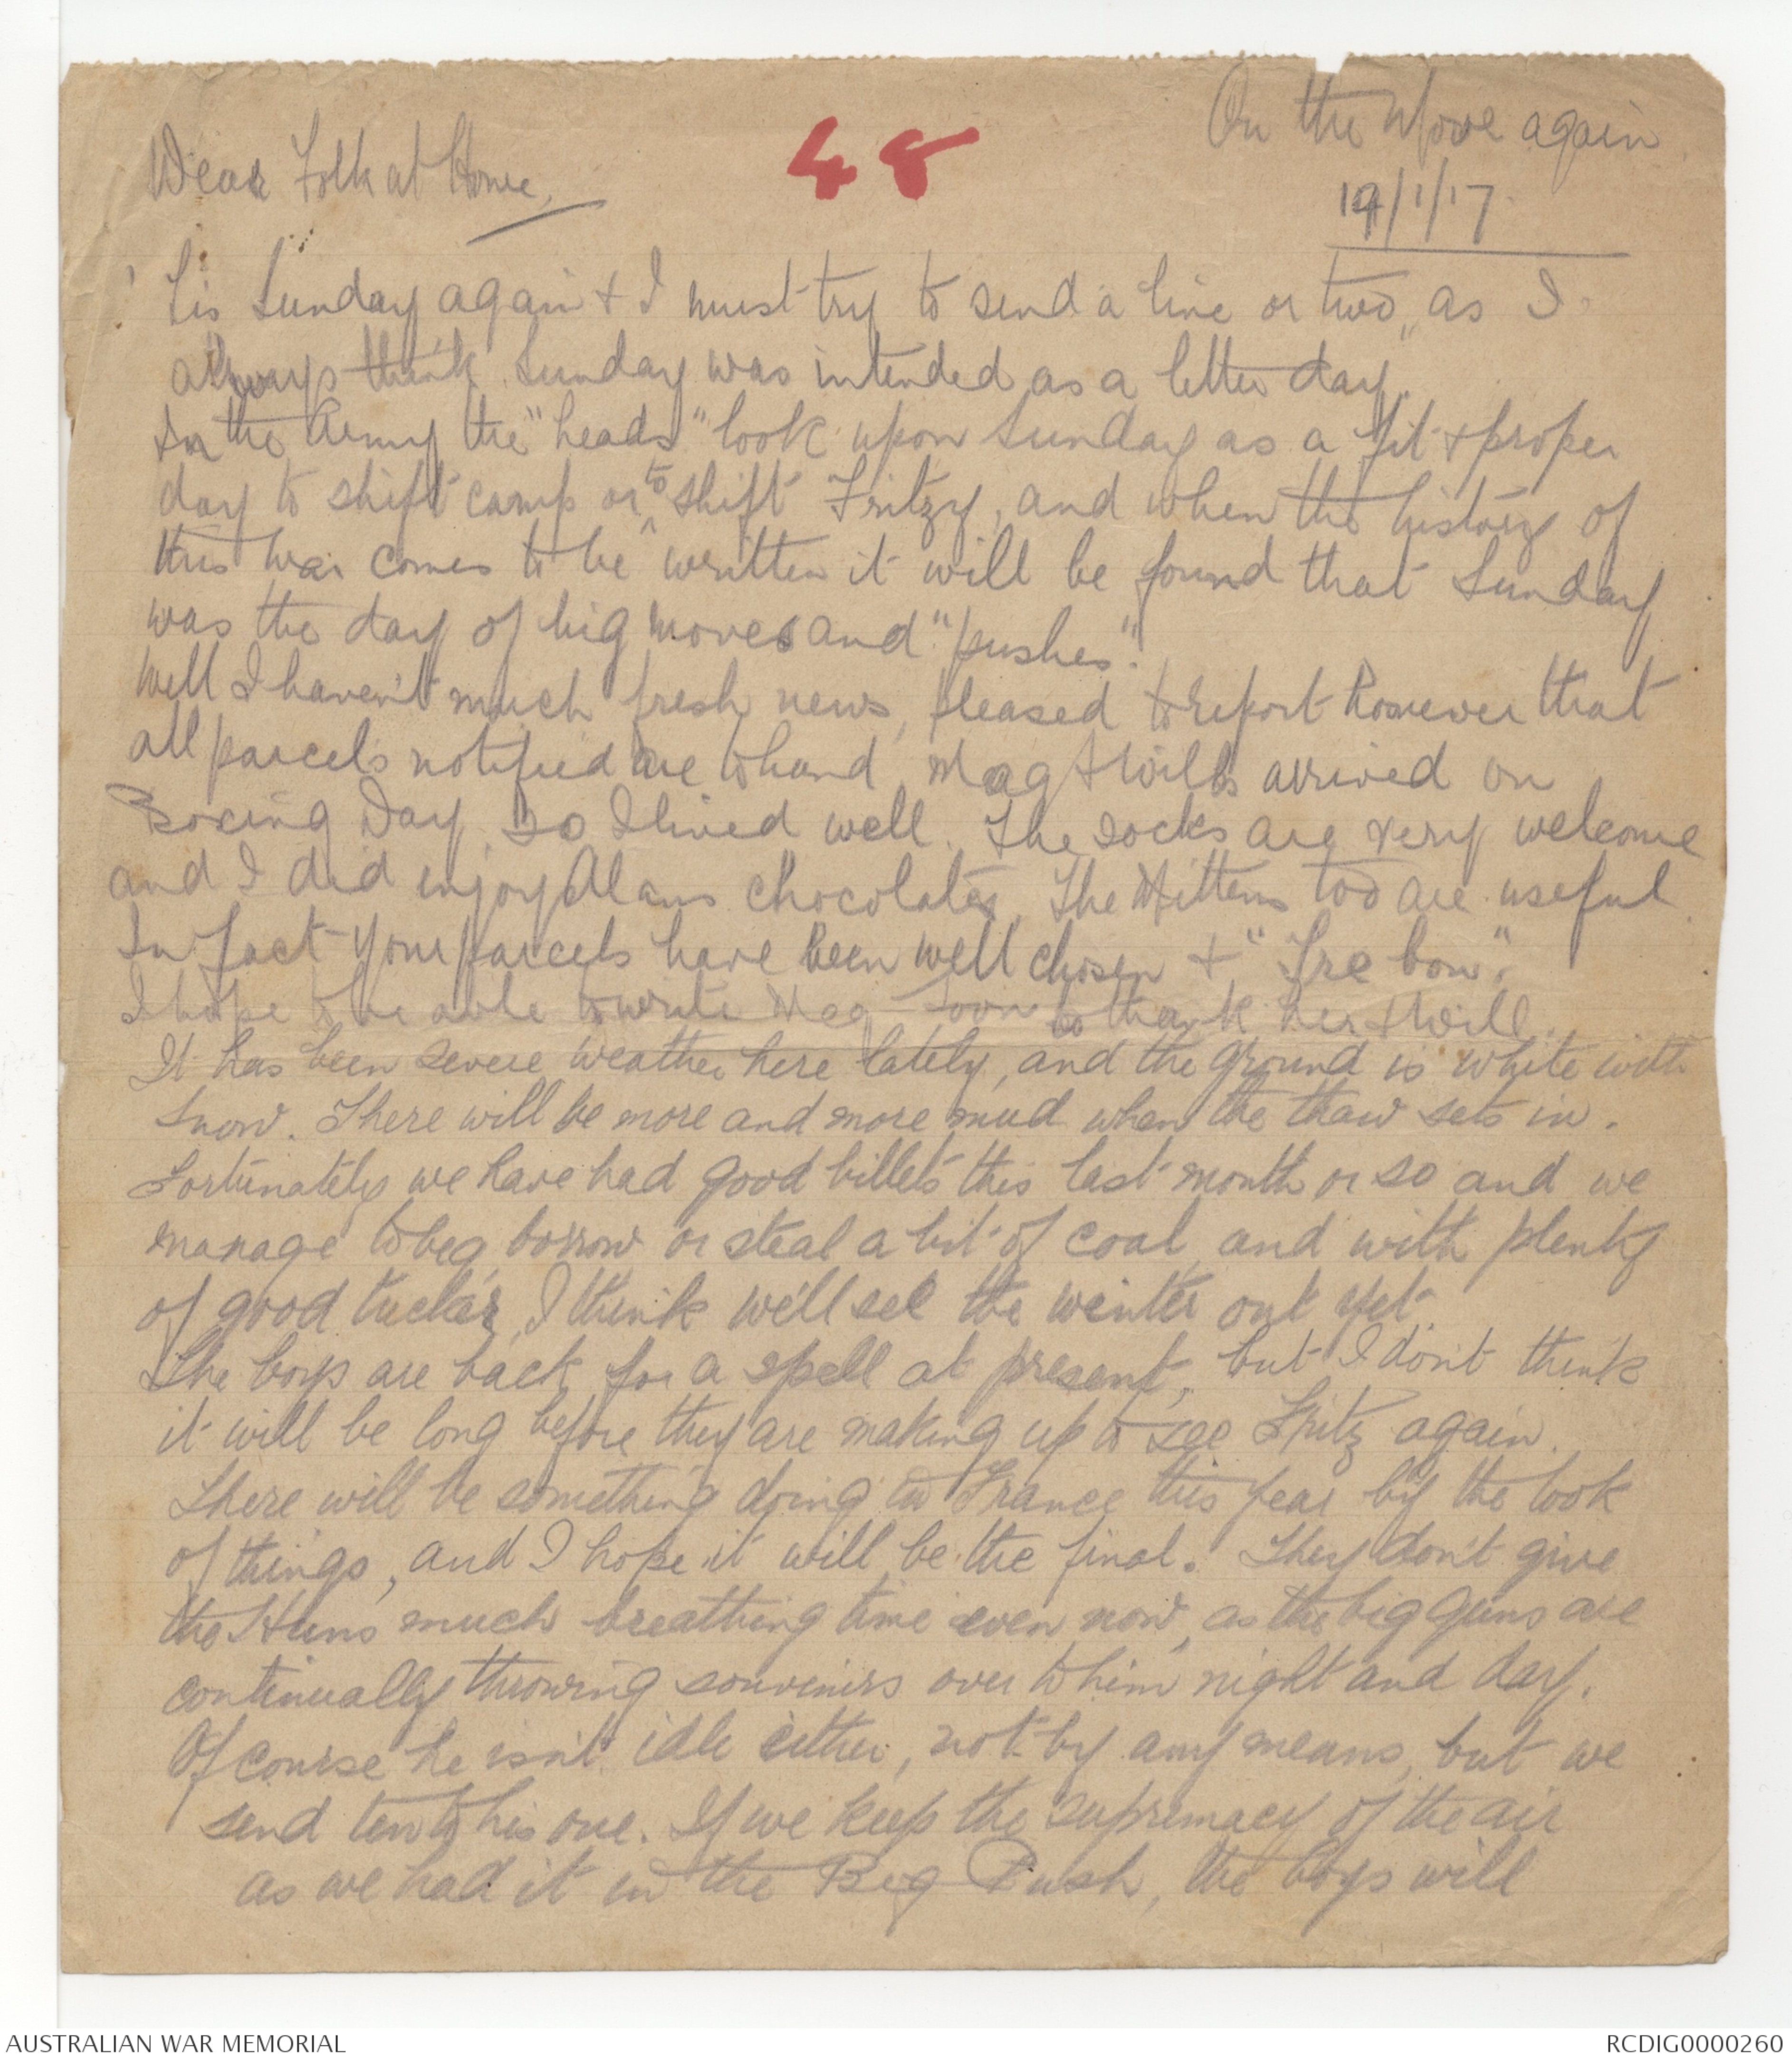 On the Move again
48
19/1/17
Dear Folk at Home,
'Tis Sunday again & I must try to send a line or two, as I
always think Sunday was intended as a letter day.
In the Army the "heads" look upon Sunday as a fit & proper
day to shift camp or to shift Fritzy, and when the history of
this war comes to be written it will be found that Sunday
was the day of big moves and "pushes".
Well I haven't much fresh news, pleased to report however that
all parcels notified are to hand, Mag & Will's arrived on
Boxing Day, so I lived well. The socks are very welcome
and I did enjoy Alans chocolates, The Mittens too are useful.
In fact your parcels have been well chosen & "Tre bon".
I hope to be able to write Mag soon to thank her & Will.
It has been severe weather here lately, and the ground is white with
snow. There will be more and more mud when the thaw sets in.
Fortunately we have had good billets this last month or so and we
manage to beg, borrow or steal a bit of coal, and with plenty
of good tucker, I think we'll see the winter out yet.
The boys are back for a spell at present, but I don't think
it will be long before they are making up to see Fritz again.
There will be something doing in France this year by the look
of things, and I hope it will be the final. They don't give
the Huns much breathing time even now, as the big guns are
continually throwing souvenirs over to him night and day.
Of course he isn't idle either, not by any means, but we
send ten to his one. If we keep the supremacy of the air
as we had it in the Big Push, the boys will
AUSTRALIAN WAR MEMORIAL
RCDIG0000260